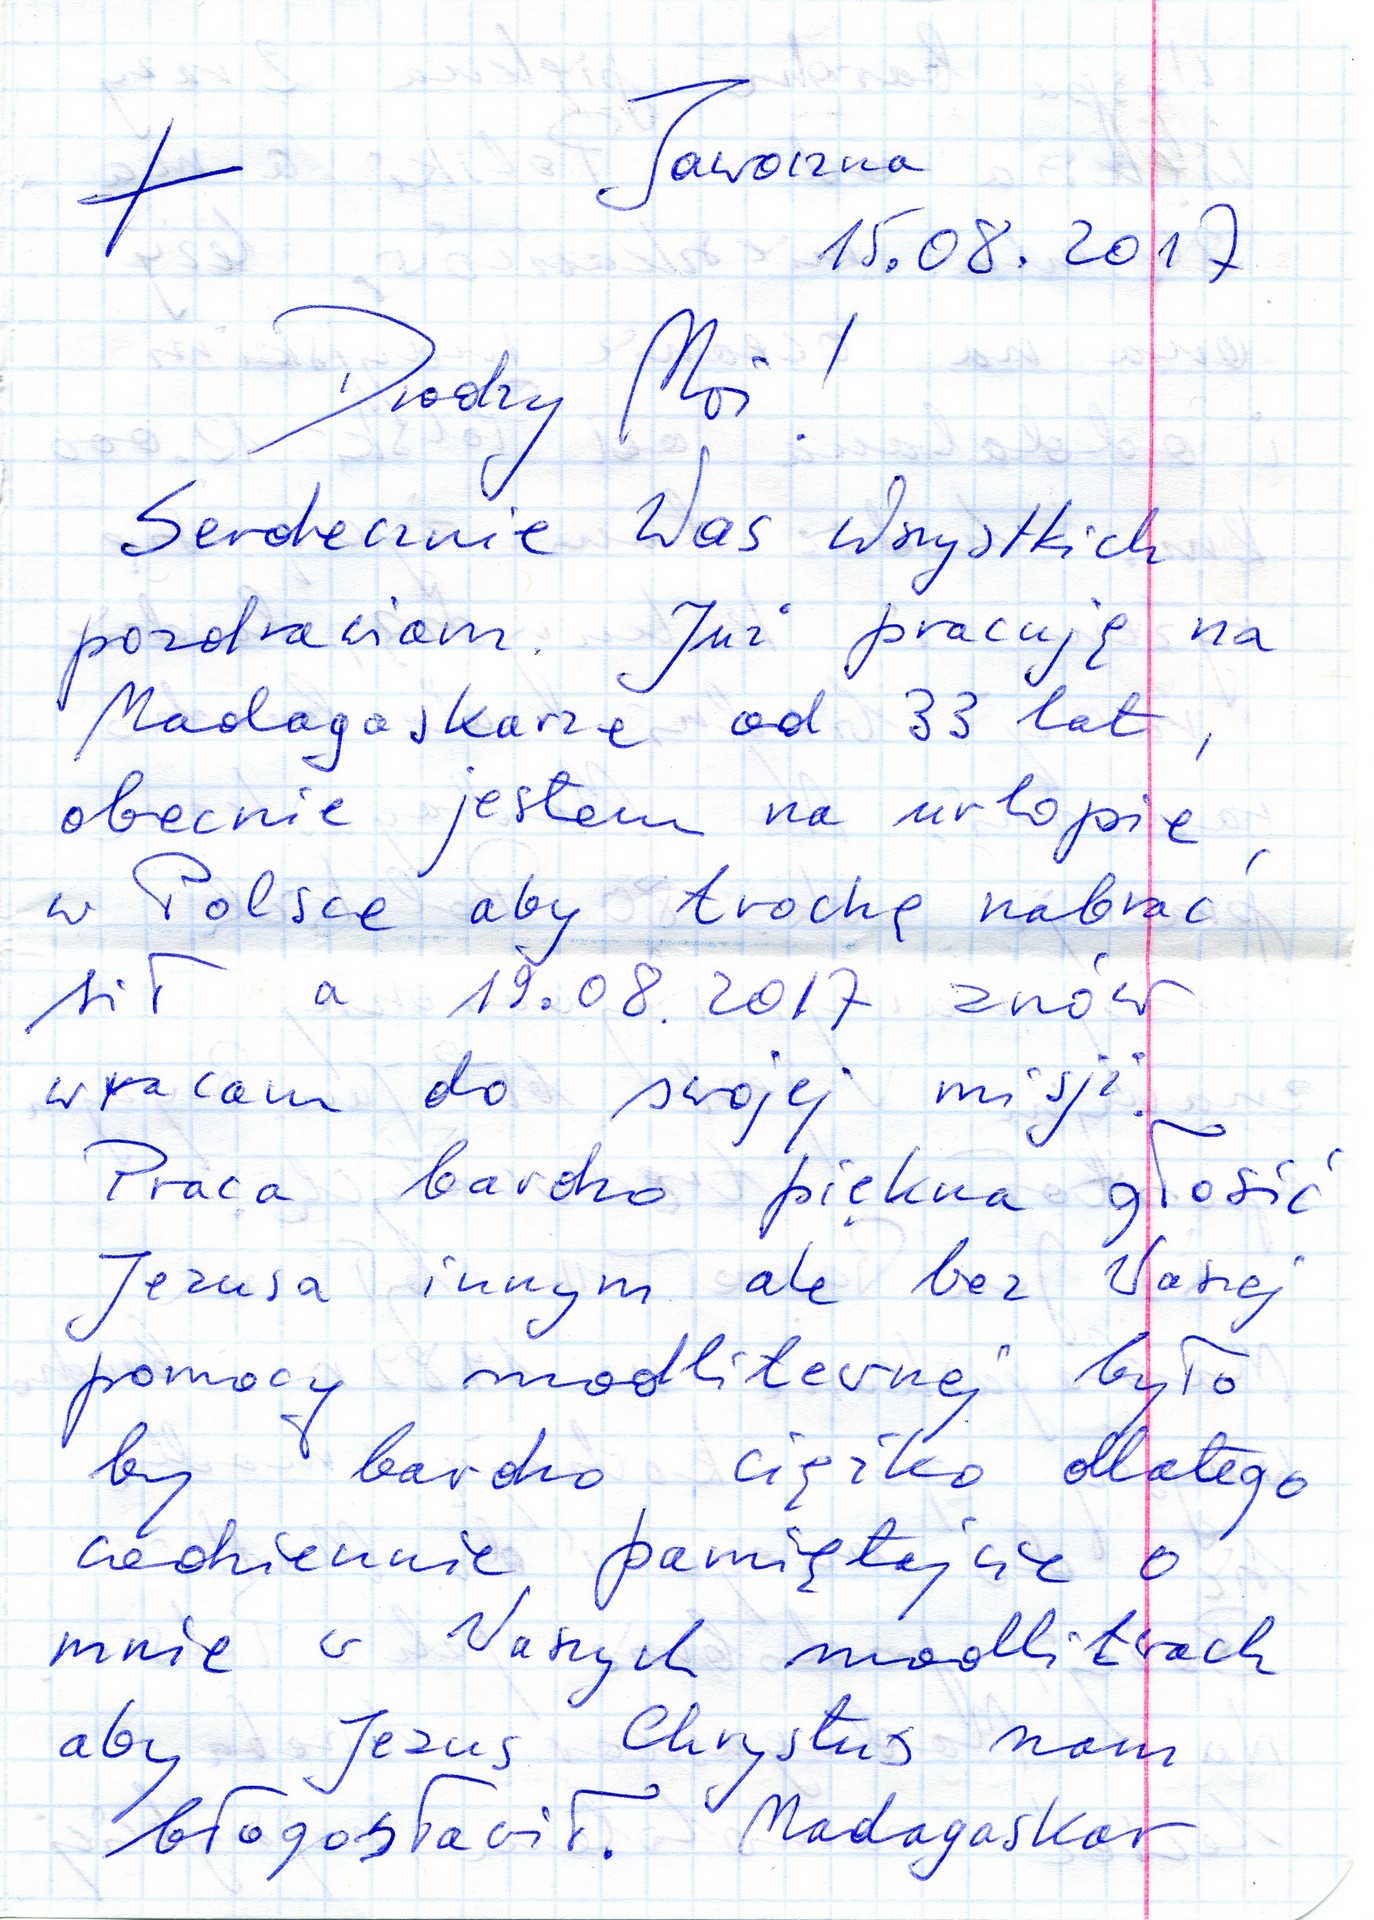 Jaworzna
15.08.2017
Drodzy Moi!
Serdecznie Was Wszystkich
pozdrawiam. Już pracuję na
Madagaskarze od 33 lat,
obecnie jestem na urlopie,
w Polsce aby trochę nabrać
sił a 19.08.2017 znów
wracam do swojej misji.
Praca bardzo piękna głosić
Jezusa innym ale bez Waszej
pomocy modlitewnej było
by bardzo ciężko dlatego
codziennie pamiętajcie o
mnie w Waszych modlitwach
aby Jezus Chrystus nam
błogosławił. Madagaskar